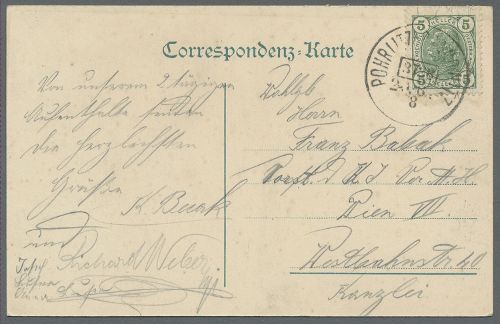 Correspondenz-Karte
5 HELLER 5
POHRLITZ
8
Von unserem 2 tägigen
Aufenthalte senden
die herzlichsten
Grüße
K. Buak
und
Richard Weber
Josef
Wohlgb
Herrn
Franz Babak
Vorst. d. K.
Wien VII
Westbahnstr 40
Kanzlei